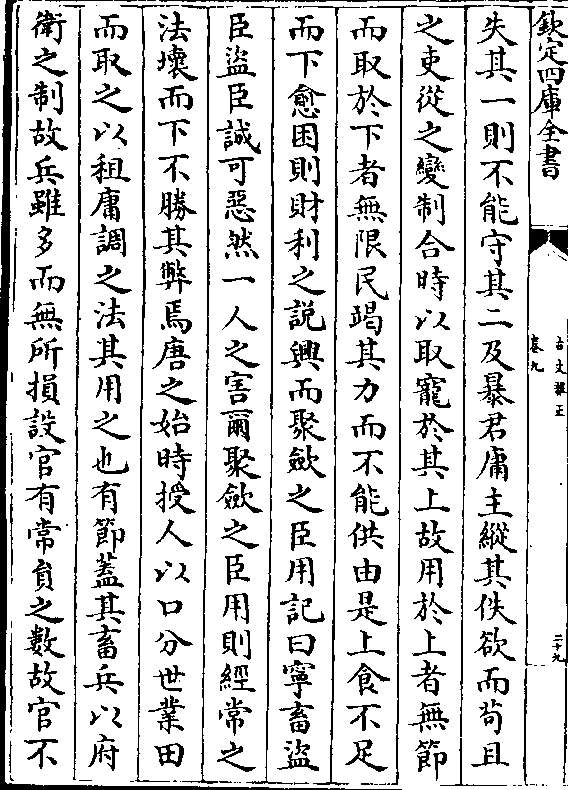 欽定四庫全書
古文雅正
卷九
二十九
失其一則不能守其二及暴君庸主縱其佚欲而茍且
之吏從之變制合時以取寵於其上故用於上者無節
而取於下者無限民竭其力而不能供由是上食不足
而下愈困則財利之說興而聚斂之臣用記曰寧畜盜
臣盜臣誠可惡然一人之害爾聚斂之臣用則經常之
法壞而下不勝其弊焉唐之始時授人以口分世業田
而取之以租庸調之法其用之也有節蓋其畜兵以府
衛之制故兵雖多而無所損設官有常員之數故官不